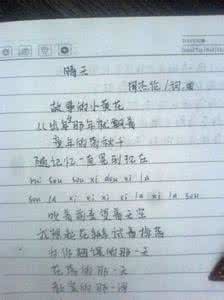 晴天
周杰伦/词.曲
故事的小黄花
从出生那年就飘着
童年的荡秋千
随记忆一直晃到现在
mi sou sou xi dou xi la
sou la xi xi xi xi la xi la sou
吹着前奏望着天空
我想起花瓣试着掉落
为你翘课的那一天
花落的那一天
教室的那一间